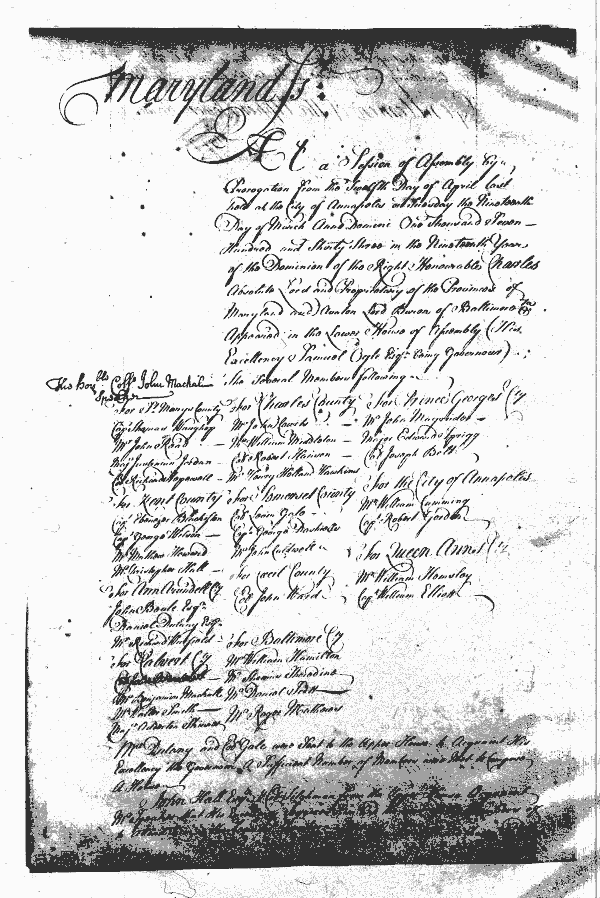 Maryland Ss
At a Session of Assembly by
Prorogation from the Twelfth Day of April last
held at the City of Annapolis on Tuesday the Nineteenth
Day of March Anno Domini One Thousand Seven
Hundred and Thirty three in the Nineteenth Year
of the Dominion of the Right Honourable Charles
Absolute Lord and Proprietary of the Provinces of
Maryland and Avalon Lord Baron of Baltimore &c
Appeared in the Lower House of Assembly (His
Excellency Samuel Ogle Esqr being Governour)
The Honble Collo John Mackall
Speaker
The Several Members following
For St Marys County
Mr John Read
For Kent County
Capt Ebenezer Blakiston
Capt George Wilson
Mr Mathew Howard
Mr Christopher Hall
For Ann Arundell Cty
John Beale Esqr
Daniel Dulany Esqr
Mr Richard Warfield
For Calvert Cty
Mr Benjamin Mackall
Mr Walter Smith
For Charles County
Mr John Courts
Mr William Middleton
Col Robert Hanson
Mr Henry Holland Hawkins
For Somerset County
Col Levin Gale
Capt George Dashiell
Mr John Caldwell
For Cecil County
Col John Ward
For Baltimore Cty
Mr William Hamilton
Mr Thomas Sheredine
Mr Daniel Scott
Mr Roger Mathews
For Prince Georges Cty
Mr John Magruder
Major Edward Sprigg
Col Joseph Belt
For the City of Annapolis
Mr William Cumming
Capt Robert Gordon
For Queen Anns Cty
Mr William Hemsley
Capt William Elliott
Mr Dulany and Col Gale were Sent to the Upper House to Acquaint His
Excellency the Governour A Sufficient Number of Members were Met to Compose
A House
John Hall Esqr from the Upper House Acquaints
Mr Speaker that His Excellency